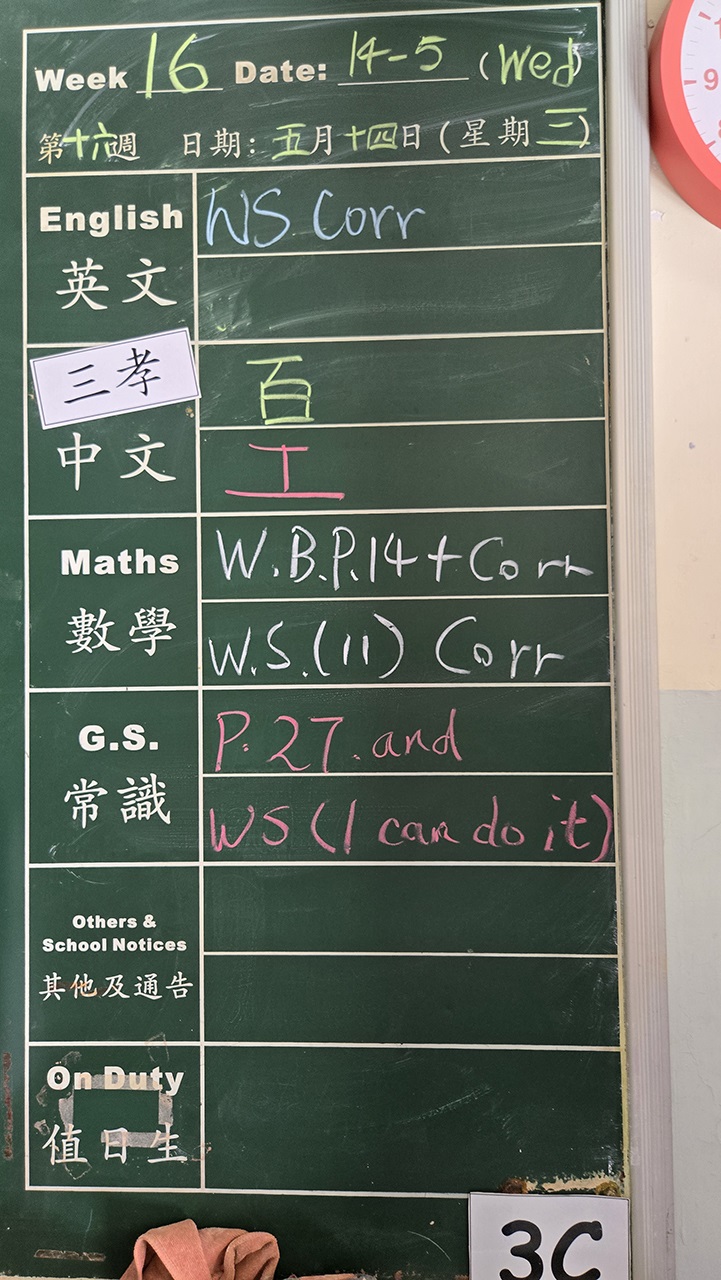 Week 16 Date: 14-5 (Wed)
第十六週 日期: 五月十四日 (星期三)
English WS Corr
英文
三孝 百
中文 工
Maths W.B.P.14 + Corr
數學 W.S.(11) Corr
G.S. P.27. and
常識 WS (I can do it)
Others &
School Notices
其他及通告
On Duty
值日生
3C
9